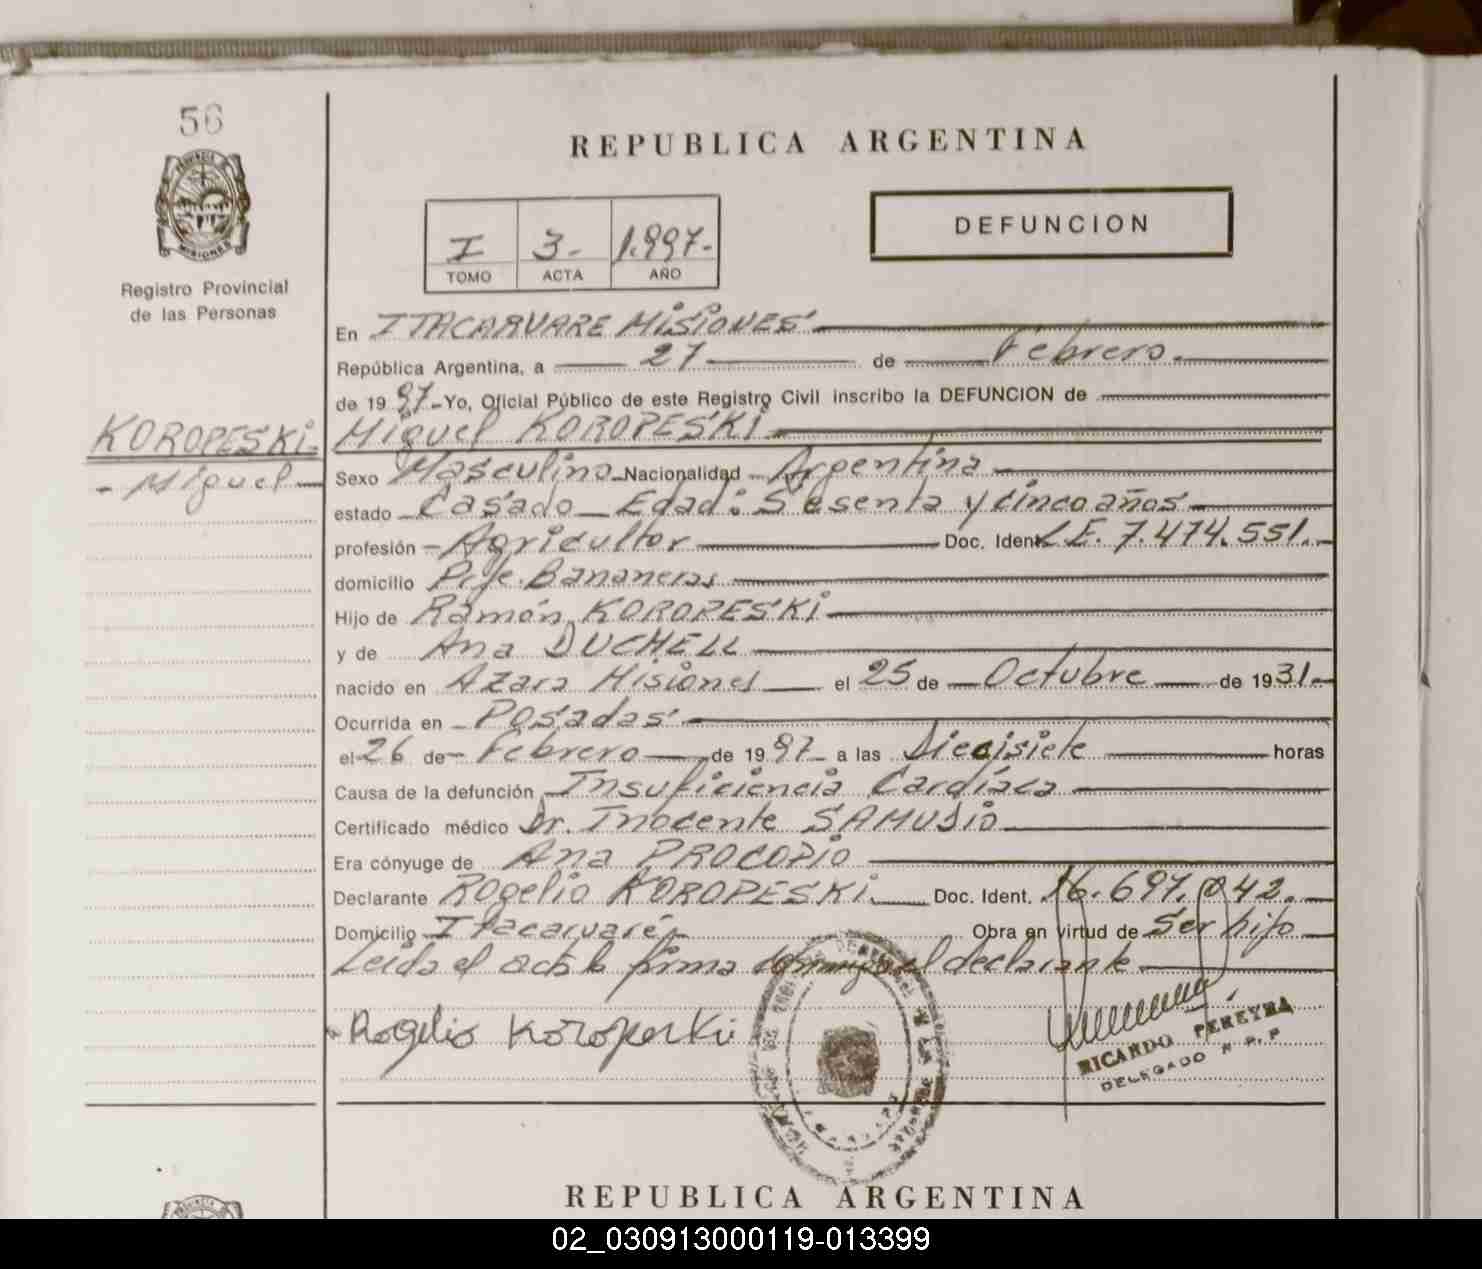 56
REPUBLICA ARGENTINA
DEFUNCION
I 3- 1.997-
TOMO ACTA AÑO
MISIONES
Registro Provincial
de las Personas
En ITACARUARE MISIONES
República Argentina, a 27 de Febrero.
de 1997 - Yo, Oficial Público de este Registro Civil inscribo la DEFUNCION de
KOROPESKI-
- Miguel
Miguel KOROPESKI
Sexo Masculino Nacionalidad Argentina
estado Casado Edad: Sesenta y cinco años
profesión Agricultor Doc. Ident. L.E. 7.474.551.
domicilio Pje. Bananeras
Hijo de Ramón KOROPESKI
y de Ana DUCHELL
nacido en Azara Misiones el 25 de Octubre de 1931.
Ocurrida en Posadas
el 26 de Febrero de 1997 a las Diecisiete horas
Causa de la defunción Insuficiencia Cardíaca
Certificado médico Dr. Inocente SAMUDIO
Era cónyuge de Ana PROCOPIO
Declarante Rogelio KOROPESKI. Doc. Ident. 16.697.042.
Domicilio Itacaruaré Obra en virtud de Ser hijo
Leida el acta la firma conmigo el declarante
Rogelio Koropeski
RICARDO PEREYRA
DELEGADO R. P. P
REPUBLICA ARGENTINA
02_030913000119-013399